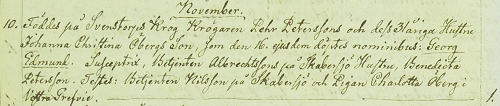 November.
10. Föddes på Svenstorps Krog Krögaren Pehr Peterssons och dess 31åriga Hustru
Johanna Christina Öbergs Son, som den 16. ejusdem döptes nominibus: Georg
Edmund. Susceptrix, Betjenten Albrechtssons på Skabersjö Hustru, Benedicta
Petersson. Testes: Betjenten Nilsson på Skabersjö och Pigan Charlotta Öberg i